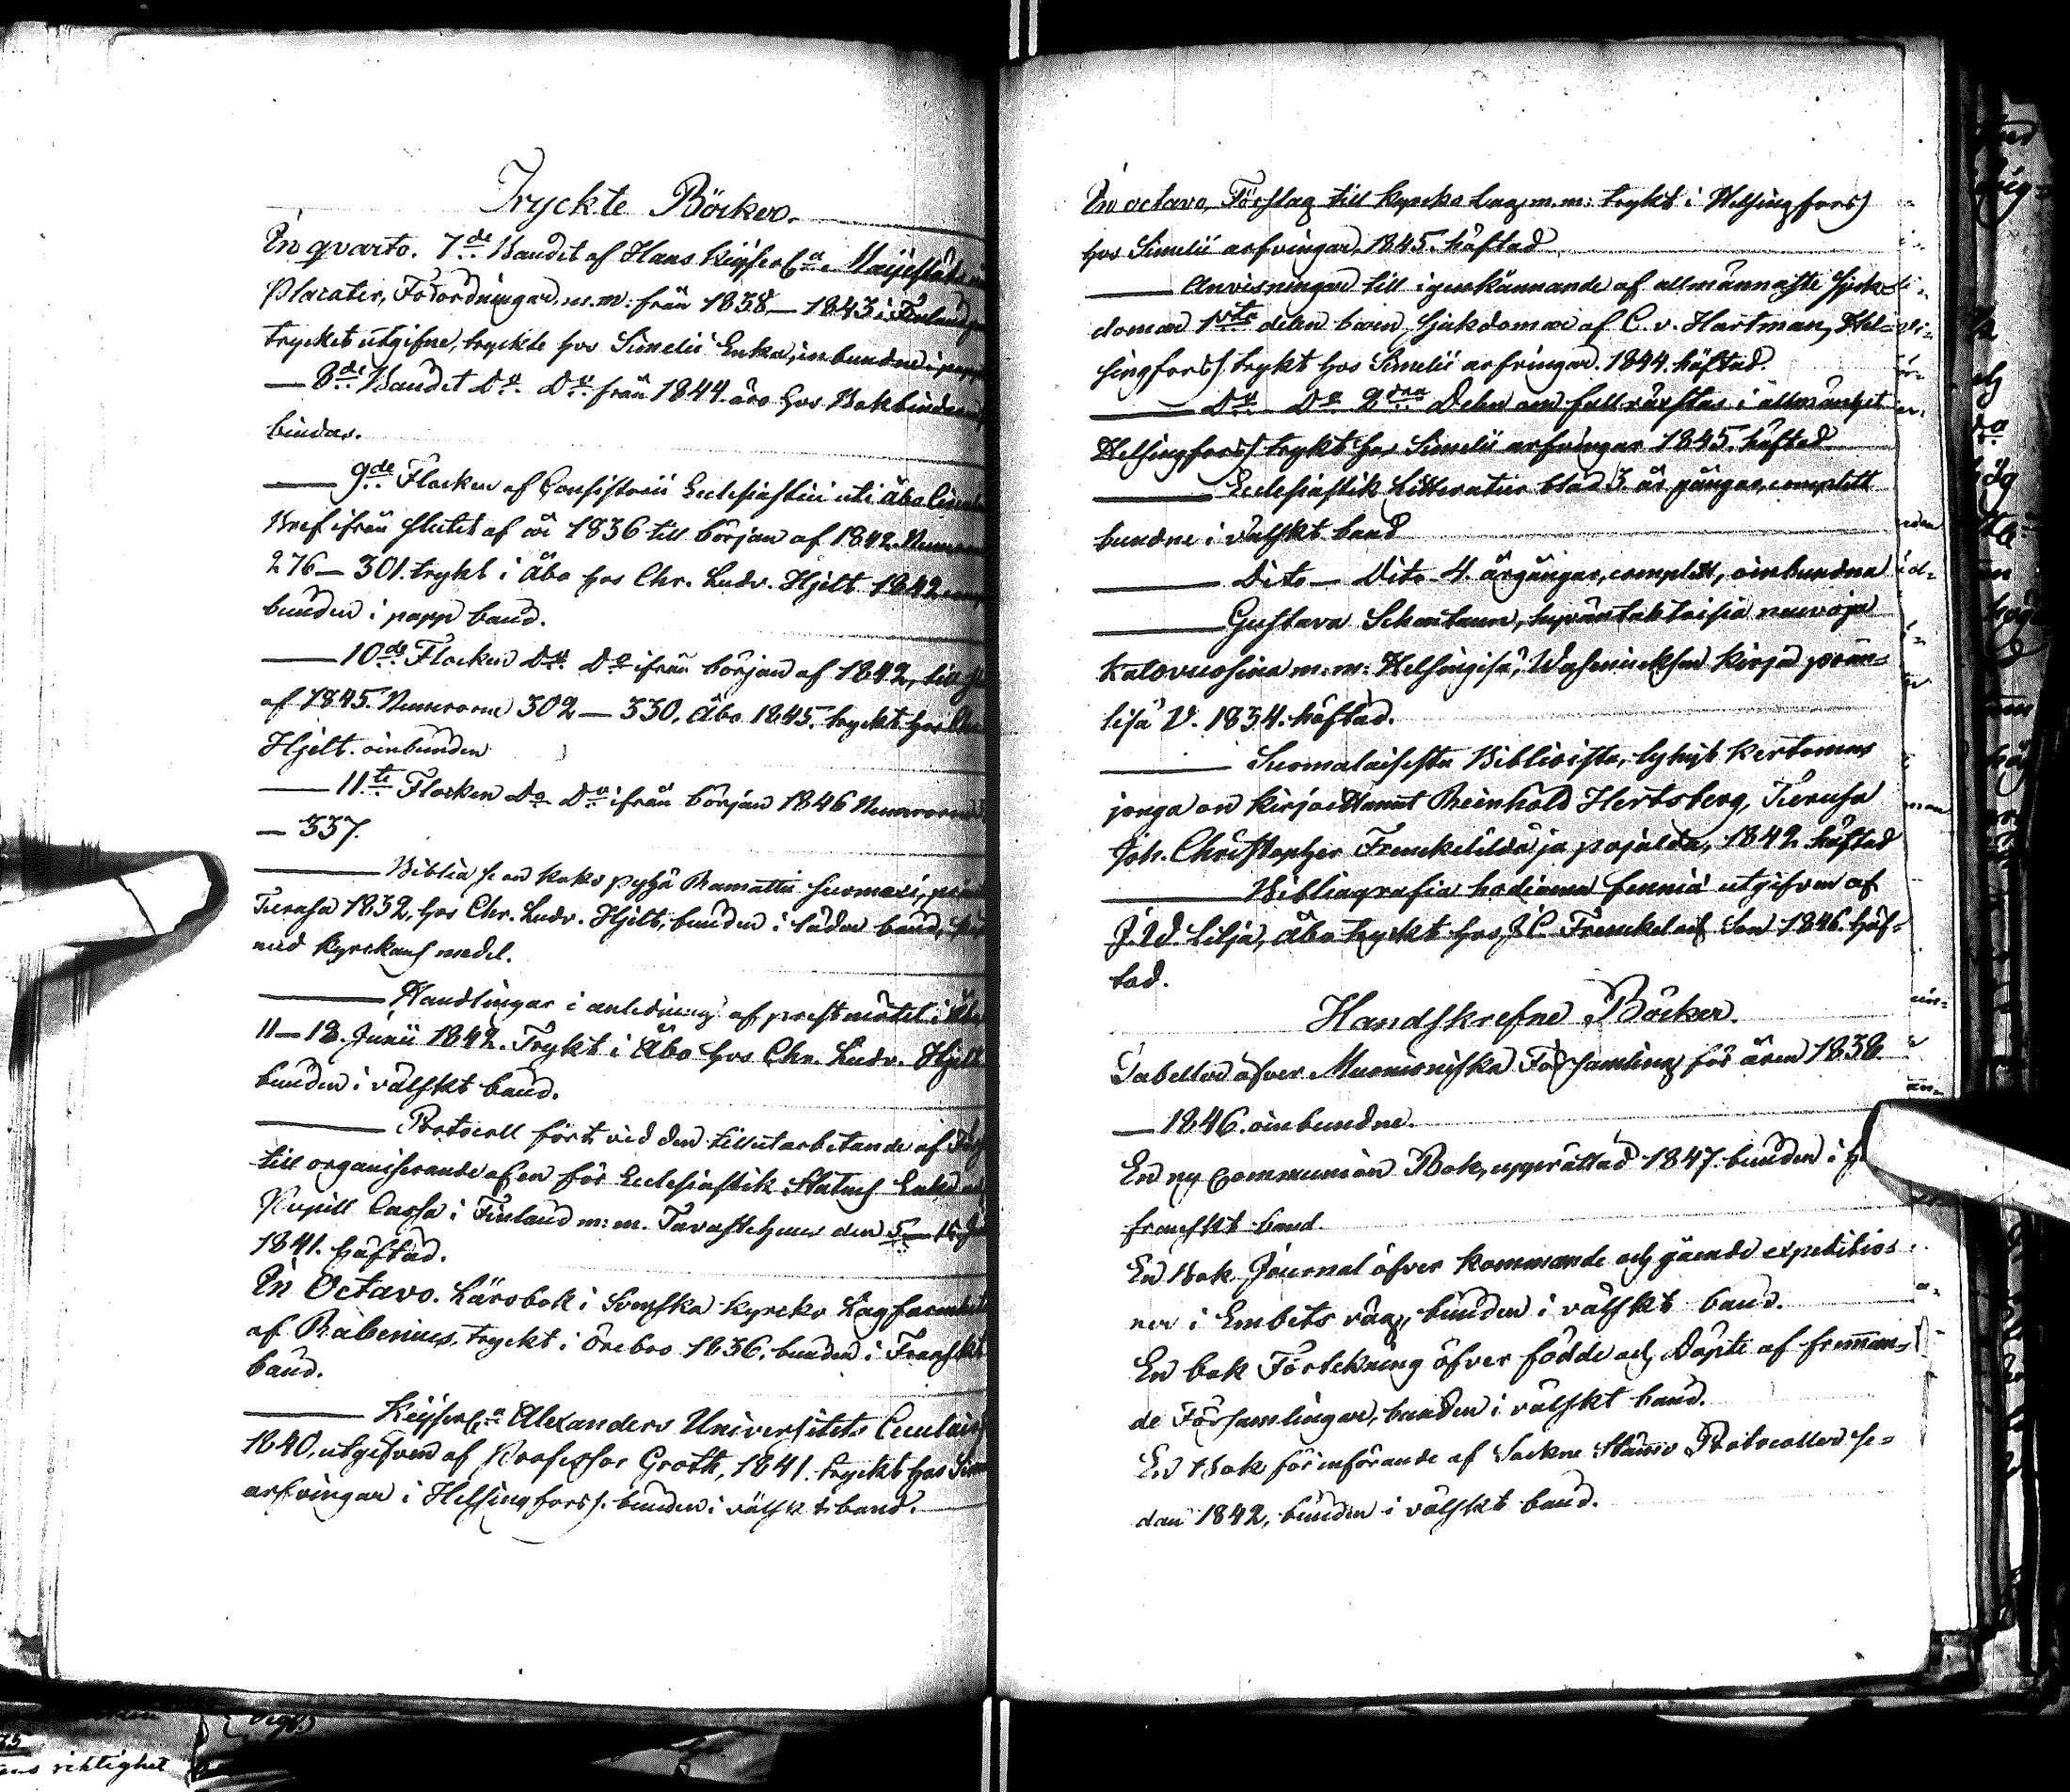 Tryckte Böcker.
In qvarto. 7de Bandet af Hans Keijserl:a Maijestäts
Placater, Förordningar m.m: från 1838 — 1843 i Finland
trycket utgifne, tryckte hos Simelii Enka, inbundne i papp
— 8de Bandet Do Do från 1844 äro hos Bokbindaren
bindas.
— 9de Flocken af Consistorii Ecclesiastici uti Åbo Circulär
Bref ifrån slutet af år 1836 till början af 1842. Numrorne
276 — 301. trykt i Åbo hos Chr. Ludv. Hjelt 1842
bunden i papp band.
— 10de Flocken Do Do ifrån början af 1842, till
af 1845. Numrorne 302 — 330, Åbo 1845. tryckt hos
Hjelt. oinbunden
— 11te Flocken Do Do ifrån början 1846 Numrorne
— 337.
— Biblia se on koko pyhä Ramattu suomexi,
Turusa 1832, hos Chr. Ludv. Hjelt, bunden i läder band,
med kyrckans medel.
— Handlingar i anledning af prestmötet i Åbo
11 — 18. Junii 1842. Trykt i Åbo hos Chr. Ludv. Hjelt
bunden i välskt band.
— Protocoll fört vid den till utarbetande af
till organiserande af en för Ecclesiastik Statens Enke
Pupill Cassa i Finland m: m. Tavastehus den 5 — 15
1841. häftad.
In Octavo. Lärobok i Svenska kyrcko Lagfarenhet
af Rabenius, tryckt i Örebro 1836. bunden i Franskt
band.
— Keijserl:a Alexanders Universitets
1840, utgifven af Professor Groth, 1841. tryckt hos
arfvingar i Helsingfors. bunden i välskt band.
In octavo, Förslag till kyrcko Lag m.m: trykt i Helsingfors
hos Simelii arfvingar, 1845. häftad
— Anvisningar till igenkännande af allmännaste sjuk-
domar 1sta delen barn sjukdomar af C. v. Hartman, Hel-
singfors, trykt hos Simelii arfvingar. 1844. häftad.
— Do Do 2dra Delen om fullväxtas i allmänhet
Helsingfors trykt hos Simelii arfvingar 1845. häftad
— Ecclesiastik Litteratur blad 3 år gångar, complett
bundne i välskt band
— Dito — Dito 4. årgångar, complett, oinbundna
— Gustava Schartaun, hyväntahtoisia neuvoja
katovuosina m. m: Helsingisä, Waseniuksen kirja prän-
tisä V. 1834. häftad.
— Suomalaisesta Bibliasta, lyhyt kertomus
jonga on kirjoittanut Reinhold Hertsberg, Turusa
Joh. Christopher Frenckelildä ja pojalda, 1842. häftad
— Bibliografia hodierna fennia utgifven af
J. W. Lilja, Åbo tryckt hos J. C. Frenckel och Son 1846. häf-
tad.
Handskrefne Böcker.
Tabeller öfver Församling för åren 1838
— 1846. oinbundne.
En ny Communion Bok, upprättad 1847. bunden i
franskt band.
En Bok Journal öfver kommande och gående expeditio-
ner i Embets väg, bunden i välskt band.
En bok Förtekning öfver födde och Döpte af fremman-
de Församlingar, bunden i välskt band.
En Bok för införande af Sockne Stämo Protocoller se-
dan 1842, bunden i välskt band.